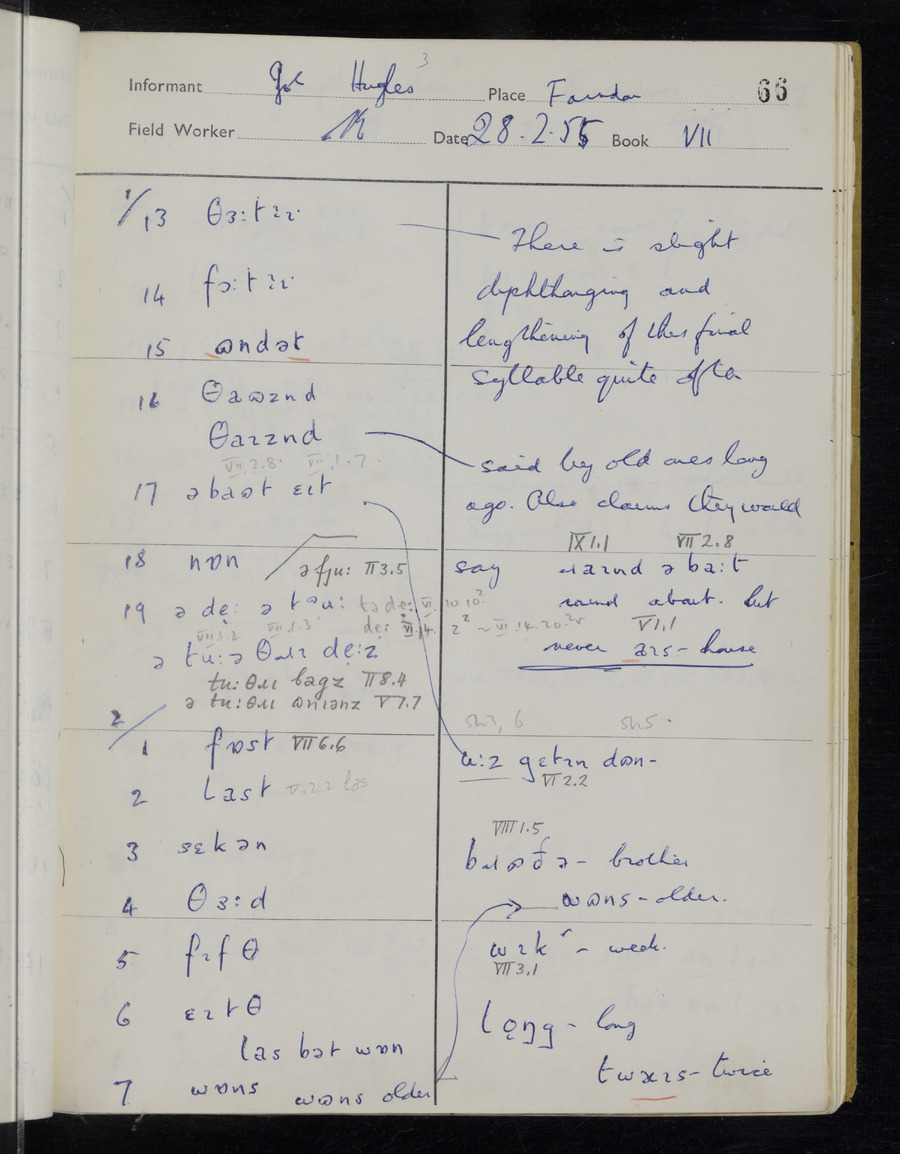 Informant Hughes 3 Place Farndon 66
Field Worker Date 28.2.55 Book VII
1/13 θɜ:tɪɪ
14 fɔ:tɪɪ
15 ɷndəɪt
16 θaɷznd
θaɪznd
VII.2.8. VII.1.7.
17 əbaɷt ɛɪt
18 nɒn ə fju: II 3.5
19 ə dẹ: ə
VII.1.2 VII.1.3
ə tu:ə θɹɪ dẹ:z
tu: θɹɪ bagz II 8.4
ə tu: θɹɪ ɷnɪənz V 7.7
2/
1 fɒst VII 6.6
2 last V.2.2 las
3 sɛkən
4 θɜ:d
5 fɪfθ
6 ɛɪtθ
las bət wɒn
7 wɒns wɷns older
There is slight
diphthonging and
lengthening of this final
syllable quite often
said by old ones long
ago. Also claims they would
IX 1.1 VII 2.8
say ɹaɪnd əba:t
round about. but
VI.1
never aɪs - house
sh3, 6 sh5.
ɪ:z gɛtɪn dɷn -
VI 2.2
VIII 1.5
bɹɷðə - brother
wɷns - older.
wɪk - week.
VII 3.1
lọŋg - long
twɑɪs - twice